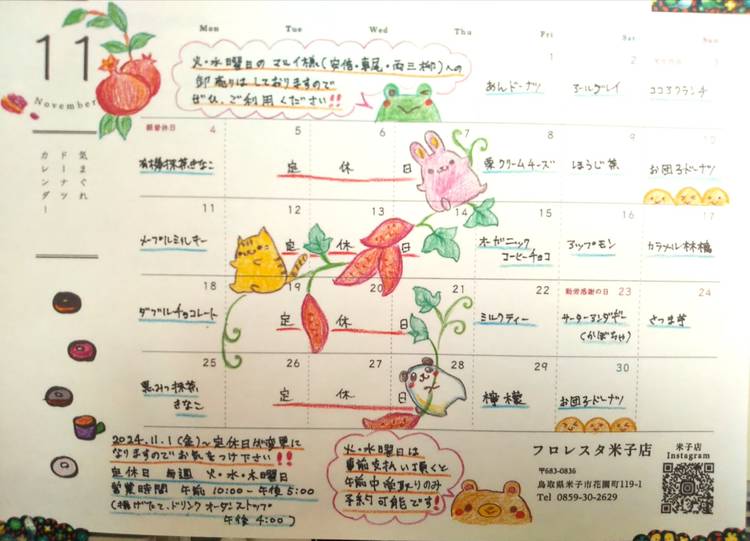 11
November
気まぐれ
ドーナツ
カレンダー
Mon Tue Wed Thu Fri Sat Sun
火・水曜日のマルイ様(安倍・車尾・両三柳)への
卸売りはしておりますので
ぜひ、ご利用ください!!
1
あんドーナツ
2
アールグレイ
3
ココアクランチ
振替休日 4
有機抹茶きなこ
5 6 7
定休日
8
栗クリームチーズ
9
ほうじ茶
10
お団子ドーナツ
11
メープルミルキー
12 13 14
定休日
15
オーガニック
コーヒーチョコ
16
アップモン
17
カラメル林檎
18
ダブルチョコレート
19 20 21
定休日
22
ミルクティー
勤労感謝の日 23
サーターアンダギー
(かぼちゃ)
24
さつま芋
25
黒みつ抹茶
きなこ
26 27 28
定休日
29
檸檬
30
お団子ドーナツ
2024.11.1(金)~定休日が変更に
なりますのでお気をつけ下さい!!
定休日 毎週 火・水・木曜日
営業時間 午前10:00~午後5:00
(揚げたて、ドリンクオーダーストップ
午後4:00)
火・水曜日は
事前支払い頂くと
午前中受取りのみ
予約可能です!
フロレスタ米子店
〒683-0836
鳥取県米子市花園町119-1
Tel 0859-30-2629
米子店
Instagram